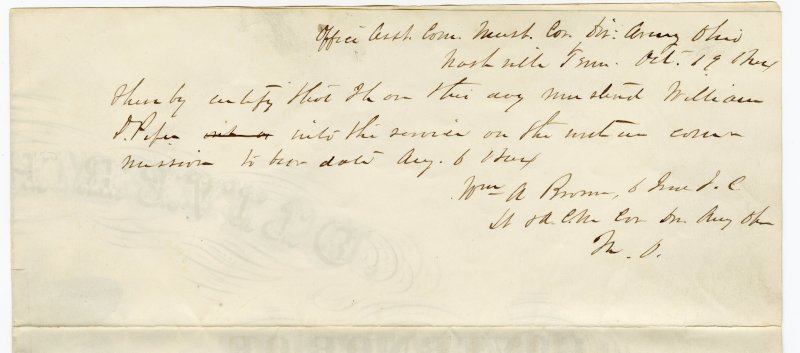 Office Asst. Com. Must. Cav. Div. Army Ohio
Nashville Tenn. Oct. 19
I hereby certify that I have on this day mustered William
D. Pifer into the service on the within com-
mission to bear date Aug. 6
Wm A Brown, 6 J. C.
Lt & A.C.M. Cav Div Army Ohio
M. O.